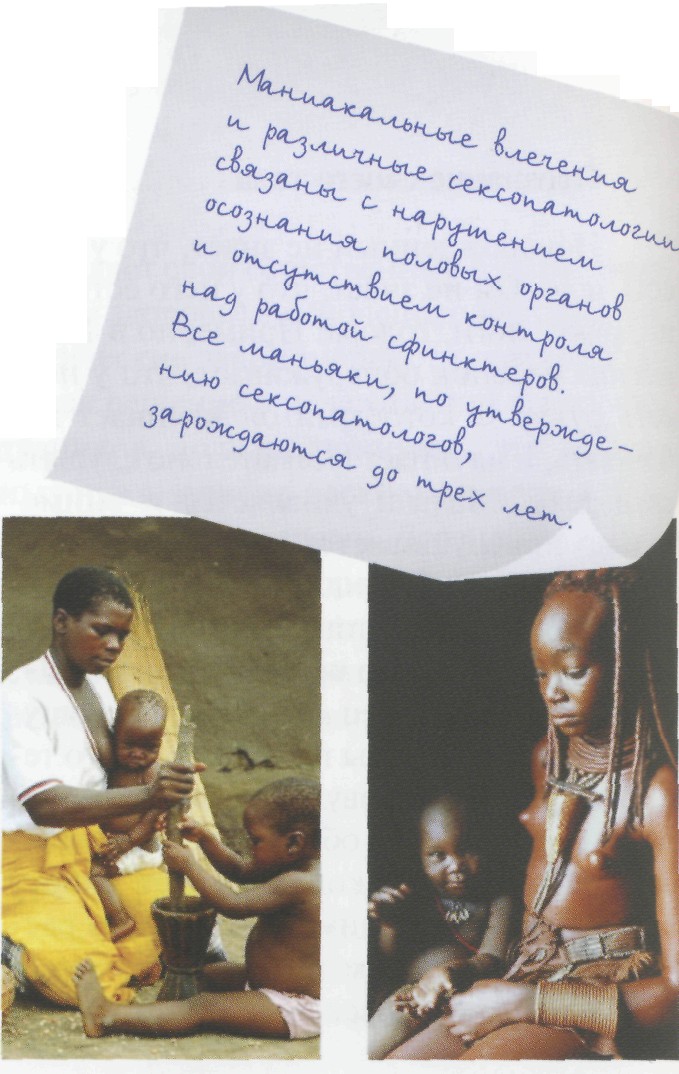 Маниакальные влечения
и различные сексопатологии
связаны с нарушением
осознания половых органов
и отсутствием контроля
над работой сфинктеров.
Все маньяки, по утвержде-
нию сексопатологов,
зарождаются до трех лет.